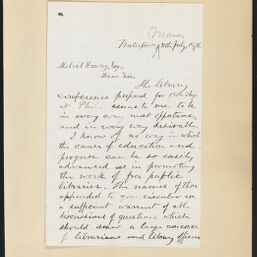 Mass.
Waterbury 8th July, 1876
Melvil Dewey, Esq.,
Dear Sir,
The library
conference proposed for 15th Aug.
at Phil. seems to me to be
in every way most opportune,
and in every way desirable.
I know of no way in which
the cause of education and
progress can be so easily
advanced as in promoting
the work of free public
libraries. The names of those
appended to your circular are
a sufficient warrant of able
discussions of questions which
should draw a large concourse
of librarians and library officers